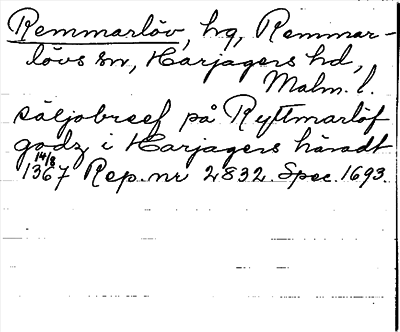 Remmarlöv, hg, Remmar-
lövs sn, Harjagers hd,
Malm. l.
säljobreef på Ryttmarlöf
godz i Harjagers häradt
14/8 1367 Rep. nr 2832. Spec. 1693.